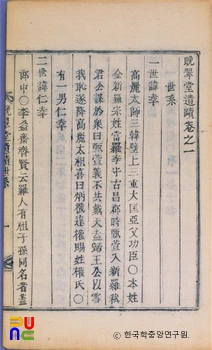 晩翠堂遺蹟卷之一
世系
一世諱幸
高麗太師三韓壁上三重大匡亞父功臣○本姓
金新羅宗姓當羅季守古昌郡時甄萱入新羅弑
君公謀於衆曰甄萱義不共戴天盍歸王公以雪
我恥遂降高麗太祖喜曰炳幾達權賜姓權氏○
有一男仁幸
二世諱仁幸
郎中○李益齋齊賢云羅人有祖子孫同名者盖
ⓒ한국학중앙연구원.